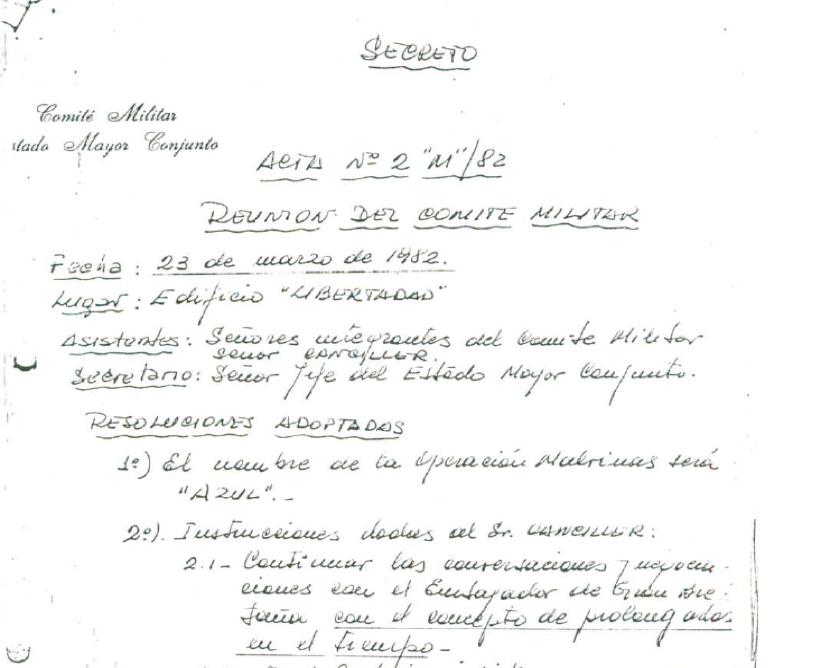 SECRETO
Comité Militar
stado Mayor Conjunto
ACTA Nº 2 "M"/82
REUNION DEL COMITE MILITAR
Fecha: 23 de marzo de 1982.
Lugar: Edificio "LIBERTADAD"
Asistentes: Señores integrantes del Comite Militar
Señor CANCILLER.
Secretario: Señor Jefe del Estado Mayor Conjunto.
RESOLUCIONES ADOPTADAS
1º) El nombre de la Operación Malvinas será
"AZUL".-
2º). Instrucciones dadas al Sr. CANCILLER:
2.1- Continuar las conversaciones y negocia-
ciones con el Embajador de Gran Bre-
taña con el concepto de prolongadas
en el tiempo-